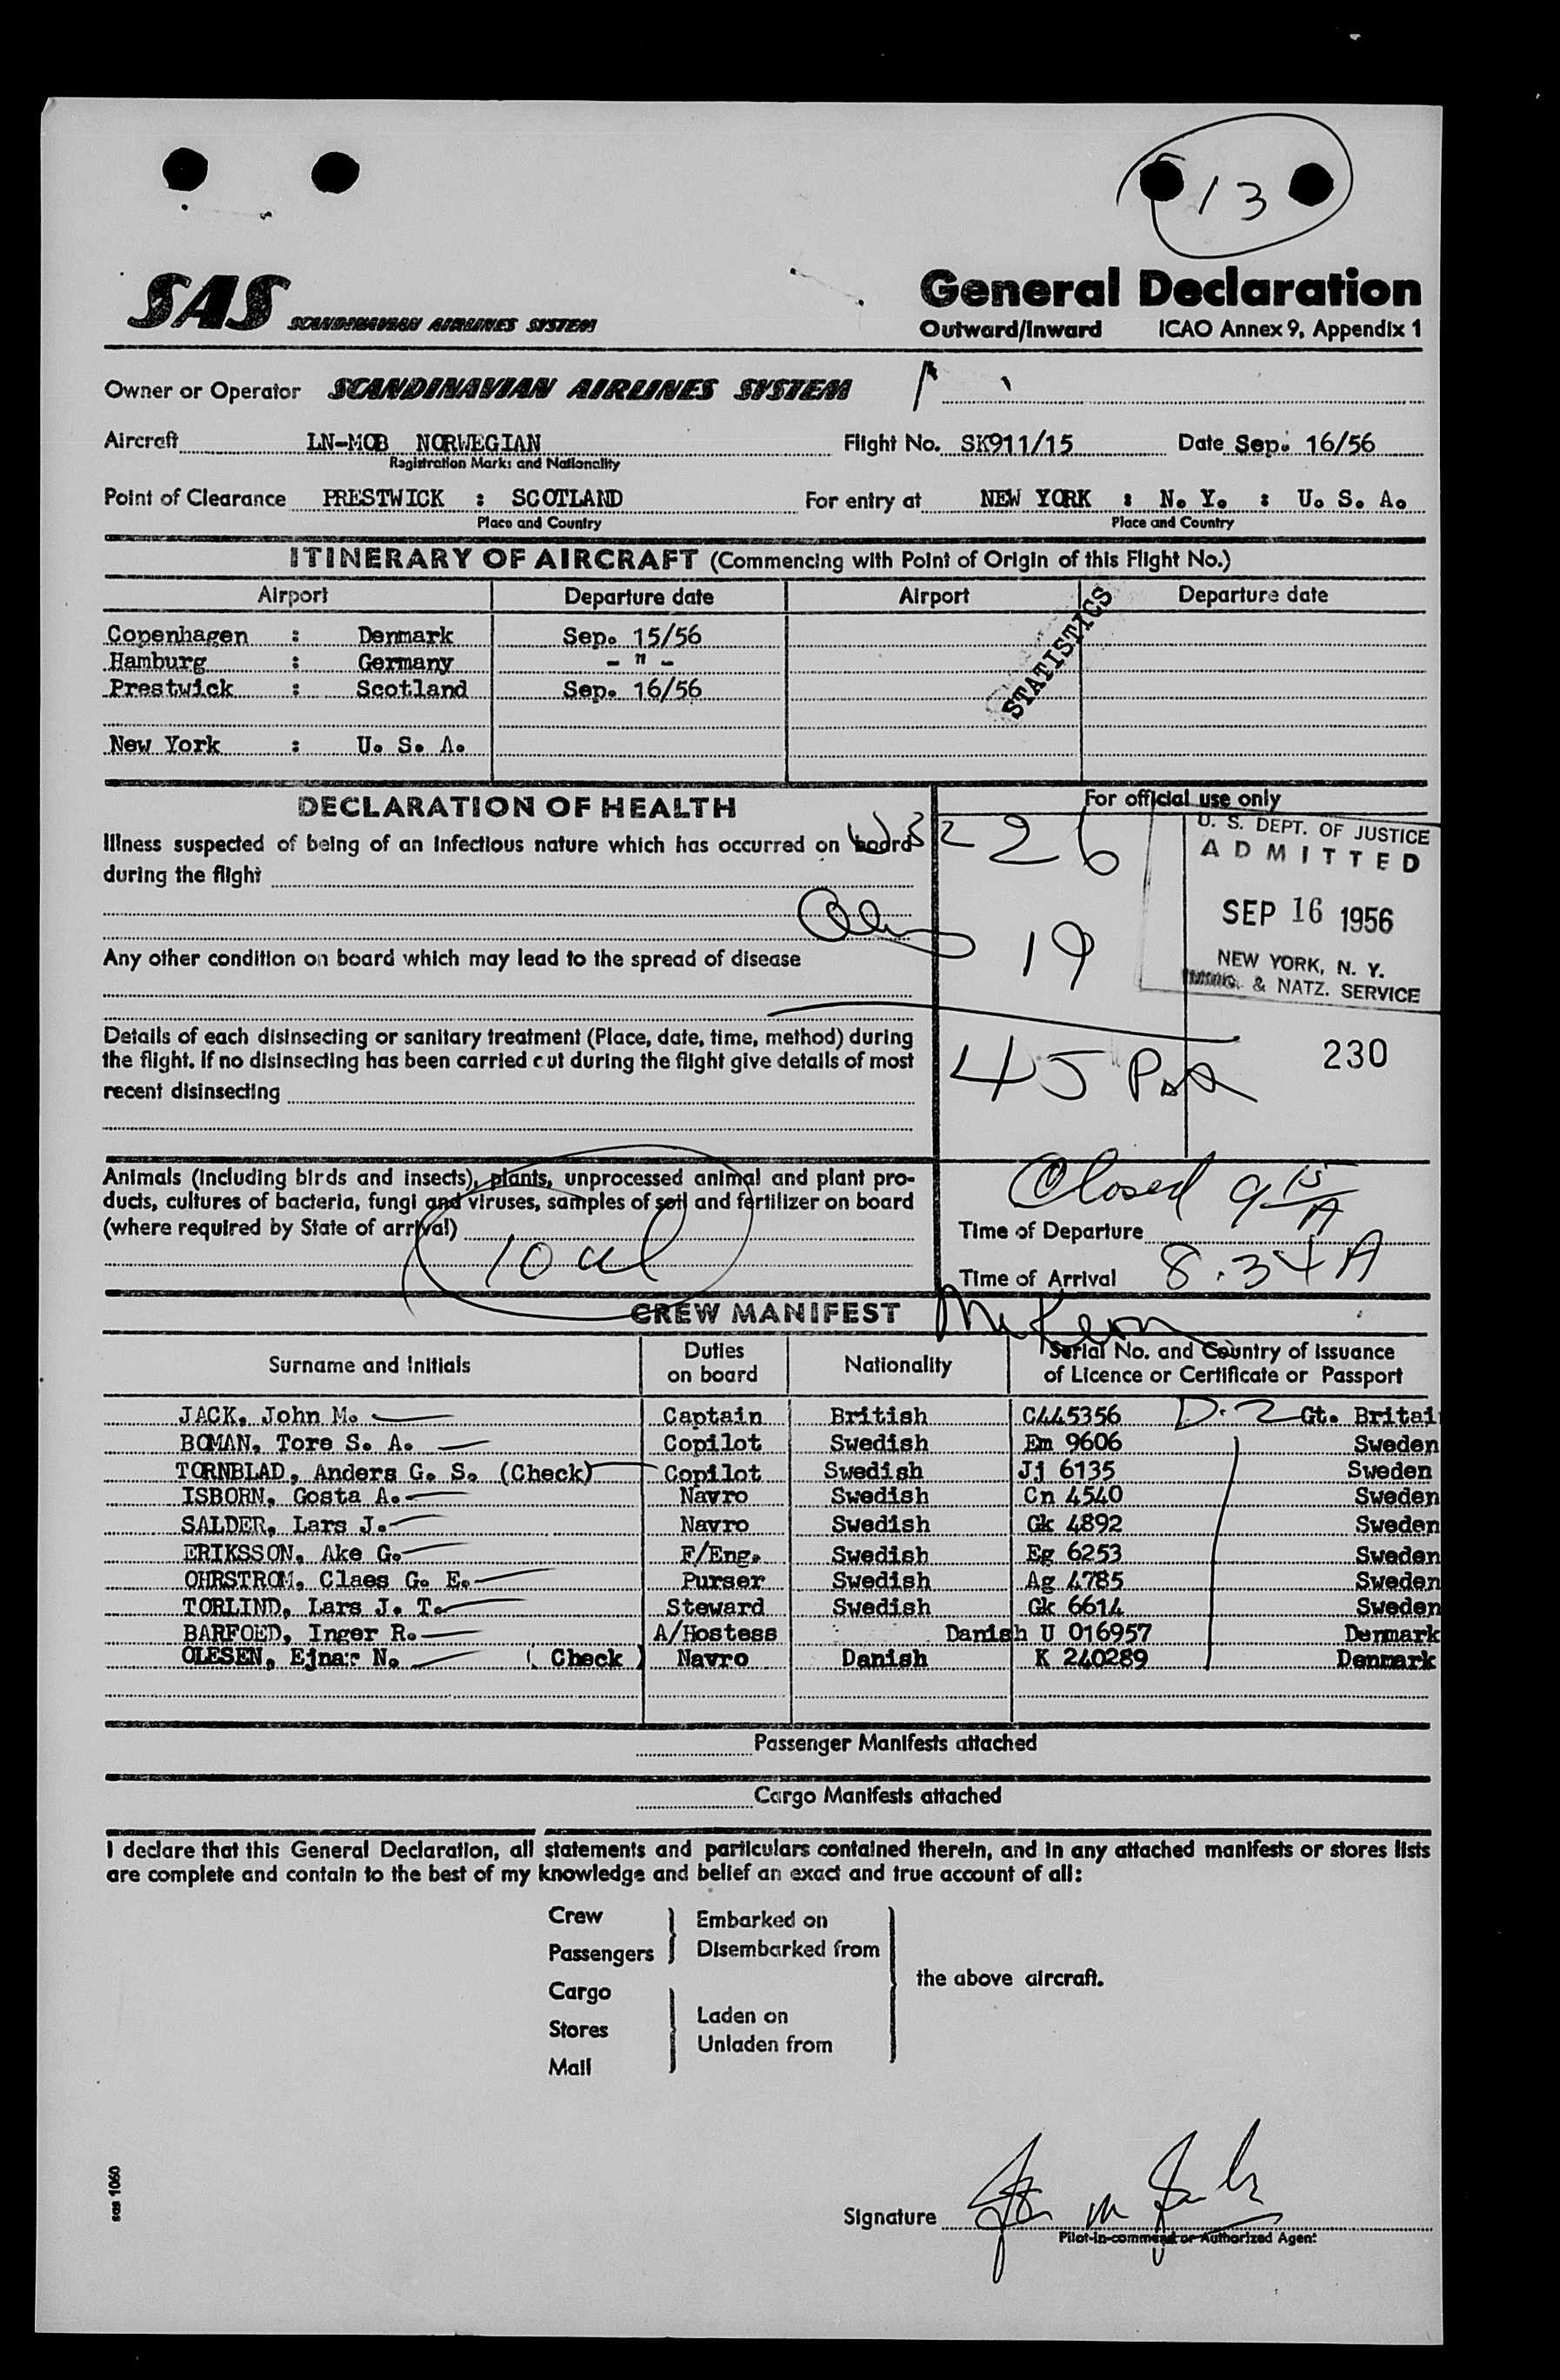 13
SAS SCANDINAVIAN AIRLINES SYSTEM
General Declaration
Outward/Inward ICAO Annex 9, Appendix 1
Owner or Operator SCANDINAVIAN AIRLINES SYSTEM
Aircraft LN-MOB NORWEGIAN Flight No. SK911/15 Date Sep. 16/56
Registration Marks and Nationality
Point of Clearance PRESTWICK : SCOTLAND For entry at NEW YORK : N. Y. : U. S. A.
Place and Country Place and Country
ITINERARY OF AIRCRAFT (Commencing with Point of Origin of this Flight No.)
Airport Departure date Airport Departure date
Copenhagen : Denmark Sep. 15/56
Hamburg : Germany - " -
Prestwick : Scotland Sep. 16/56
New York : U. S. A.
STATISTICS
DECLARATION OF HEALTH
Illness suspected of being of an infectious nature which has occurred on board
during the flight
Any other condition on board which may lead to the spread of disease
Details of each disinsecting or sanitary treatment (Place, date, time, method) during
the flight. If no disinsecting has been carried out during the flight give details of most
recent disinsecting
Animals (including birds and insects), plants, unprocessed animal and plant pro-
ducts, cultures of bacteria, fungi and viruses, samples of soil and fertilizer on board
(where required by State of arrival)
For official use only
26
19
45
U. S. DEPT. OF JUSTICE
ADMITTED
SEP 16 1956
NEW YORK, N. Y.
IMMIG. & NATZ. SERVICE
230
Closed 9 15 A
Time of Departure
Time of Arrival 8.34 A
CREW MANIFEST
Surname and Initials Duties on board Nationality Serial No. and Country of Issuance of Licence or Certificate or Passport
JACK, John M. Captain British C445356 D.2 Gt. Britai
BOMAN, Tore S. A. Copilot Swedish Em 9606 Sweden
TORNBLAD, Anders G. S. (Check) Copilot Swedish Jj 6135 Sweden
ISBORN, Gosta A. Navro Swedish Cn 4540 Sweden
SALDER, Lars J. Navro Swedish Gk 4892 Sweden
ERIKSSON, Ake G. F/Eng. Swedish Eg 6253 Sweden
OHRSTROM, Claes G. E. Purser Swedish Ag 4785 Sweden
TORLIND, Lars J. T. Steward Swedish Gk 6614 Sweden
BARFOED, Inger R. A/Hostess Danish U 016957 Denmark
OLESEN, Ejnar N. ( Check ) Navro Danish K 240289 Denmark
Passenger Manifests attached
Cargo Manifests attached
I declare that this General Declaration, all statements and particulars contained therein, and in any attached manifests or stores lists
are complete and contain to the best of my knowledge and belief an exact and true account of all:
Crew
Passengers
Embarked on
Disembarked from
Cargo
Stores
Mail
Laden on
Unladen from
the above aircraft.
sas 1060
Signature
Pilot-in-command or Authorized Agent